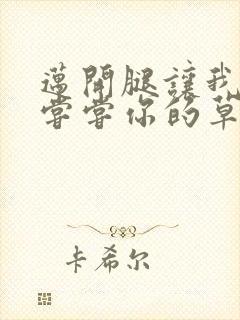 邁開腿讓我
嘗嘗你的草
卡希尔